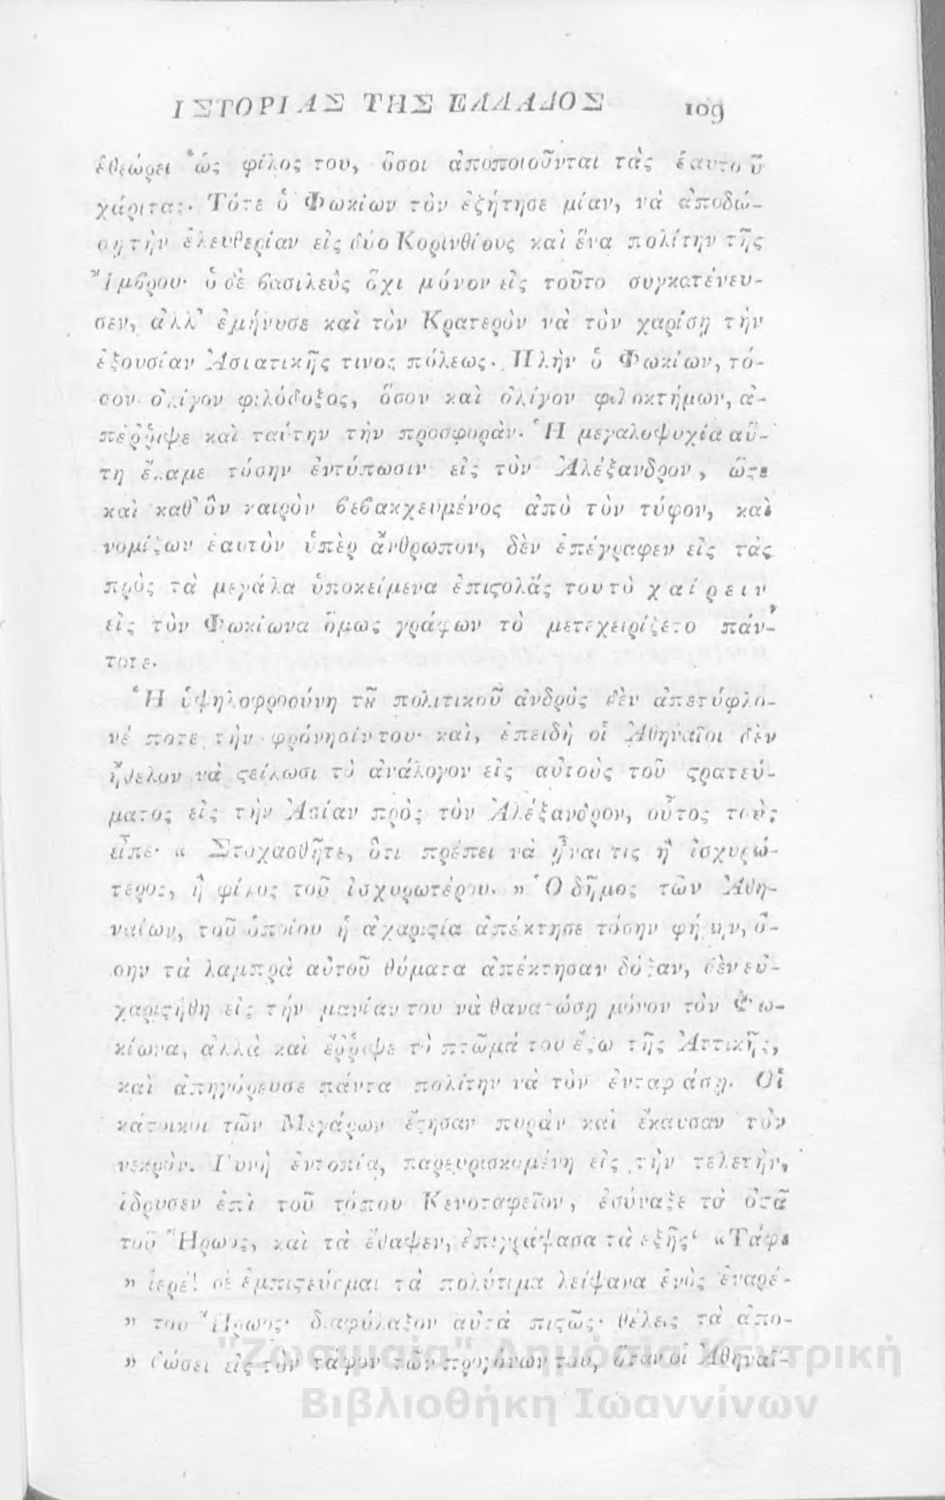 ΙΣΤΟΡΙΑΣ ΤΗΣ ΕΛΛΑΔΟΣ 109
ἐθεώρει ὡς φίλος του, ὅσοι ἀποποιοῦνται τὰς ἑαυτοῦ
χάριτας· Τότε ὁ Φωκίων τὸν ἐζήτησε μίαν, νά ἀποδώ-
σῃ τὴν ἐλευθερίαν εἰς δύο Κορινθίους καὶ ἕνα πολίτην τῆς
Ἴμβρου· ὁ δὲ βασιλεὺς ὄχι μόνον εἰς τοῦτο συγκατένευ-
σεν, ἀλλ' ἐμήνυσε καὶ τὸν Κρατερὸν νὰ τὸν χαρίσῃ τὴν
ἐξουσίαν Ἀσιατικῆς τινος πόλεως. Πλὴν ὁ Φωκίων, τό-
σον ὀλίγον φιλόδοξος, ὅσον καὶ ὀλίγον φιλοκτήμων, ἀ-
πέῤῥιψε καὶ ταύτην τὴν προσφοράν. Ἡ μεγαλοψυχία αὕ-
τη ἔκαμε τόσην ἐντύπωσιν εἰς τὸν Ἀλέξανδρον, ὥςε
καὶ καθ' ὃν καιρὸν βεβακχευμένος ἀπὸ τὸν τύφον, καὶ
νομίζων ἑαυτὸν ὑπὲρ ἄνθρωπον, δὲν ἐπέγραφεν εἰς τὰς
πρὸς τὰ μεγάλα ὑποκείμενα ἐπιςολάς του τὸ χαίρειν
εἰς τὸν Φωκίωνα ὅμως γράφων τὸ μετεχειρίζετο πάν-
τοτε.
Ἡ ὑψηλοφροσύνη τȣ͂ πολιτικοῦ ἀνδρὸς δὲν ἀπετύφλο-
νέ ποτε τὴν φρόνησίν του· καὶ, ἐπειδὴ οἱ Ἀθηναῖοι δὲν
ἤθελον νὰ ςείλωσι τὸ ἀνάλογον εἰς αὐτοὺς τοῦ ςρατεύ-
ματος εἰς τὴν Ἀσίαν πρὸς τὸν Ἀλέξανδρον, οὗτος τοὺς
εἶπε· « Στοχασθῆτε, ὅτι πρέπει νὰ ᾖναι τις ἢ ἰσχυρώ-
τερος, ἢ φίλος τοῦ ἰσχυρωτέρου. » Ὁ δῆμος τῶν Ἀθη-
ναίων, τοῦ ὁποίου ἡ ἀχαριςία ἀπέκτησε τόσην φήμην, ὅ-
σην τὰ λαμπρὰ αὐτοῦ θύματα ἀπέκτησαν δόξαν, δὲν εὐ-
χαριςήθη εἰς τὴν μανίαν του νὰ θανατώσῃ μόνον τὸν Φω-
κίωνα, ἀλλὰ καὶ ἔῤῥιψε τὸ πτῶμά του ἔξω τῆς Ἀττικῆς,
καὶ ἀπηγόρευσε πάντα πολίτην νὰ τὸν ἐνταφιάσῃ. Οἱ
κάτοικοι τῶν Μεγάρων ἔςησαν πυρὰν καὶ ἔκαυσαν τὸν
νεκρόν. Γυνὴ ἐντοπία, παρευρισκομένη εἰς τὴν τελετὴν,
ἵδρυσεν ἐπὶ τοῦ τόπου Κενοταφεῖον, ἐσύναξε τὰ ὀςᾶ
τοῦ Ἥρωος, καὶ τὰ ἔθαψεν, ἐπιγράψασα τὰ ἑξῆς· « Τάφε
» ἱερέ! σὲ ἐμπιςεύομαι τὰ πολύτιμα λείψανα ἑνὸς ἐναρέ-
» του Ἥρωος· διαφύλαξον αὐτὰ πιςῶς· θέλεις τὰ ἀπο-
» δώσει εἰς τὸν τάφον τῶν προγόνων του, ὅταν οἱ Ἀθηναῖ-
"Ζωσιμαία" Δημόσια Κεντρική
Βιβλιοθήκη Ιωαννίνων